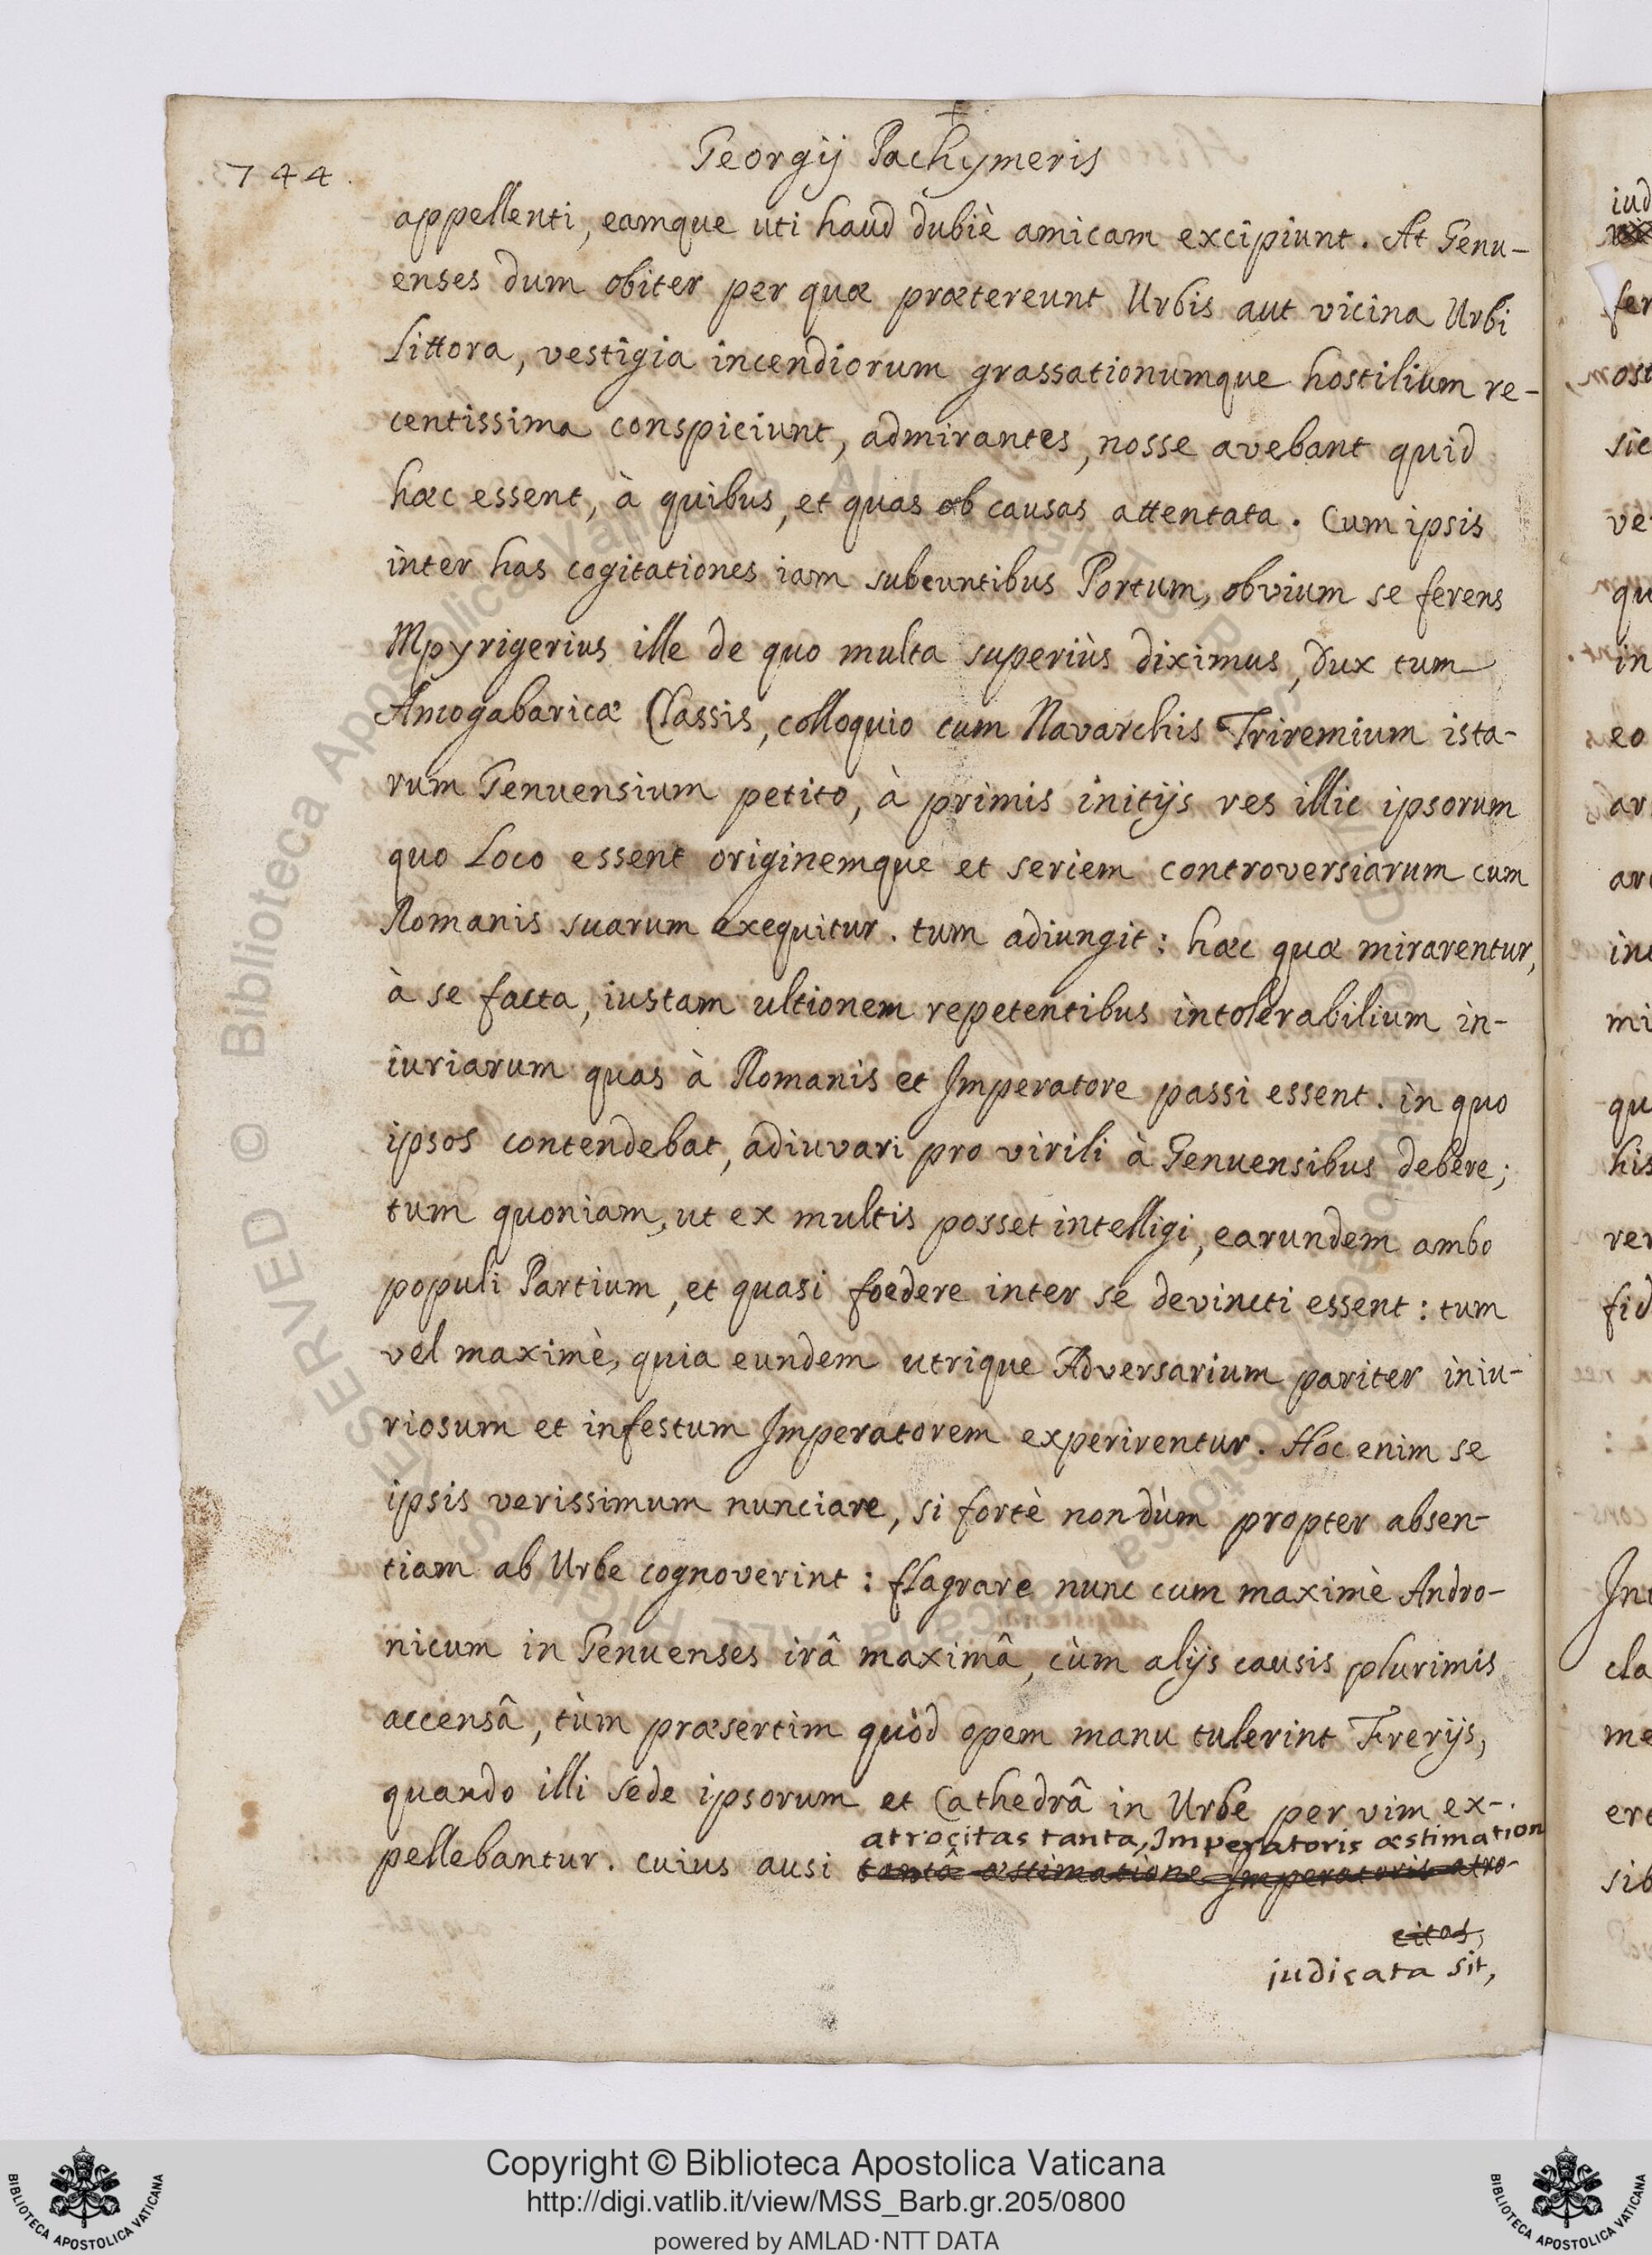 Georgij Pachymeris
744.
appellenti, eamque uti haud dubiè amicam excipiunt. At Genu-
enses dum obiter per quæ prætereunt Urbis aut vicina Urbi
Littora, vestigia incendiorum grassationumque hostilium re-
centissima conspiciunt, admirantes, nosse avebant quid
hæc essent, à quibus, et quas ob causas attentata. Cum ipsis
inter has cogitationes iam subeuntibus Portum, obvium se ferens
Mpyrigerius ille de quo multa superiùs diximus, Dux tum
Amogabaricæ Classis, colloquio cum Navarchis Triremium ista-
rum Genuensium petito, à primis initijs res illic ipsorum
quo Loco essent originemque et seriem controversiarum cum
Romanis suarum exequitur. tum adiungit: hæc quæ mirarentur,
à se facta, iustam ultionem repetentibus intolerabilium in-
iuriarum quas à Romanis et Imperatore passi essent. in quo
ipsos contendebat, adiuvari pro virili à Genuensibus debere;
tum quoniam, ut ex multis posset intelligi, earundem ambo
populi Partium, et quasi foedere inter se devincti essent: tum
vel maximè, quia eundem utrique Adversarium pariter iniu-
riosum et infestum Imperatorem experirentur. Hoc enim se
ipsis verissimum nunciare, si fortè nondùm propter absen-
tiam ab Urbe cognoverint: flagrare nunc cum maximè Andro-
nicum in Genuenses irâ maximâ, cùm alijs causis plurimis
accensâ, tùm præsertim quòd opem manu tulerint Frerijs,
quando illi Sede ipsorum et Cathedrâ in Urbe per vim ex-
atrocitas tanta, Imperatoris æstimation
pellebantur. cuius ausi tantâ æstimatione Imperatoris atro-
citas,
judicata sit,
iud
fer
ost
sic
ve
qu
in
eo
ar
ar
in
mi
qu
his
rer
fid
In
cla
me
erc
sib
© Biblioteca Apostolica Vaticana ALL RIGHTS RESERVED
Copyright © Biblioteca Apostolica Vaticana
http://digi.vatlib.it/view/MSS_Barb.gr.205/0800
powered by AMLAD·NTT DATA
BIBLIOTECA APOSTOLICA VATICANA
BIBLIOTECA APOSTOLICA VATICANA